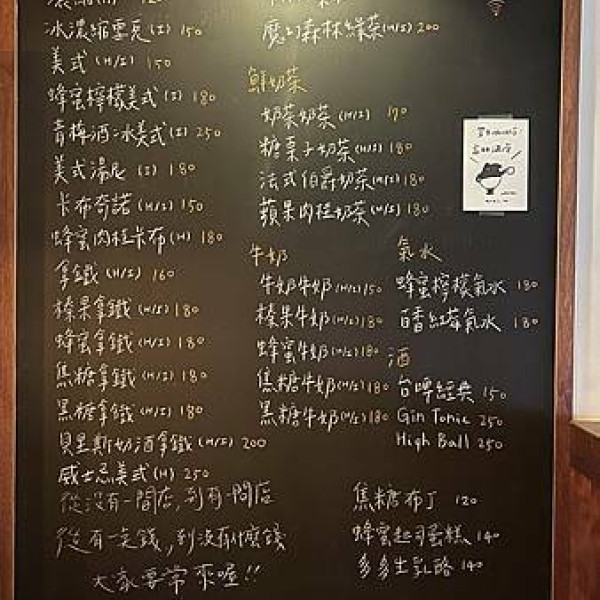 冰濃縮雪克(I) 150
美式(H/I) 150
蜂蜜檸檬美式(I) 180
青梅酒冰美式(I) 250
美式湯尼(I) 180
卡布奇諾(H/I) 150
蜂蜜肉桂卡布(H) 180
拿鐵(H/I) 160
榛果拿鐵(H/I) 180
蜂蜜拿鐵(H/I) 180
焦糖拿鐵(H/I) 180
黑糖拿鐵(H/I) 180
貝里斯奶酒拿鐵(H/I) 200
威士忌美式(H) 250
從沒有一間店,到有一間店
從有一些錢,到沒有什麼錢
大家要常來喔!!
魔幻森林綠茶(H/I) 200
鮮奶茶
奶茶奶茶(H/I) 170
糖栗子奶茶(H/I) 180
法式伯爵奶茶(H/I) 180
蘋果肉桂奶茶(H/I) 180
牛奶
牛奶牛奶(H/I) 150
榛果牛奶(H/I) 180
蜂蜜牛奶(H/I) 180
焦糖牛奶(H/I) 180
黑糖牛奶(H/I) 180
氣水
蜂蜜檸檬氣水 180
百香紅莓氣水 180
酒
台啤經典 150
Gin Tonic 250
High Ball 250
焦糖布丁 120
蜂蜜起司蛋糕 140
多多生乳酪 140